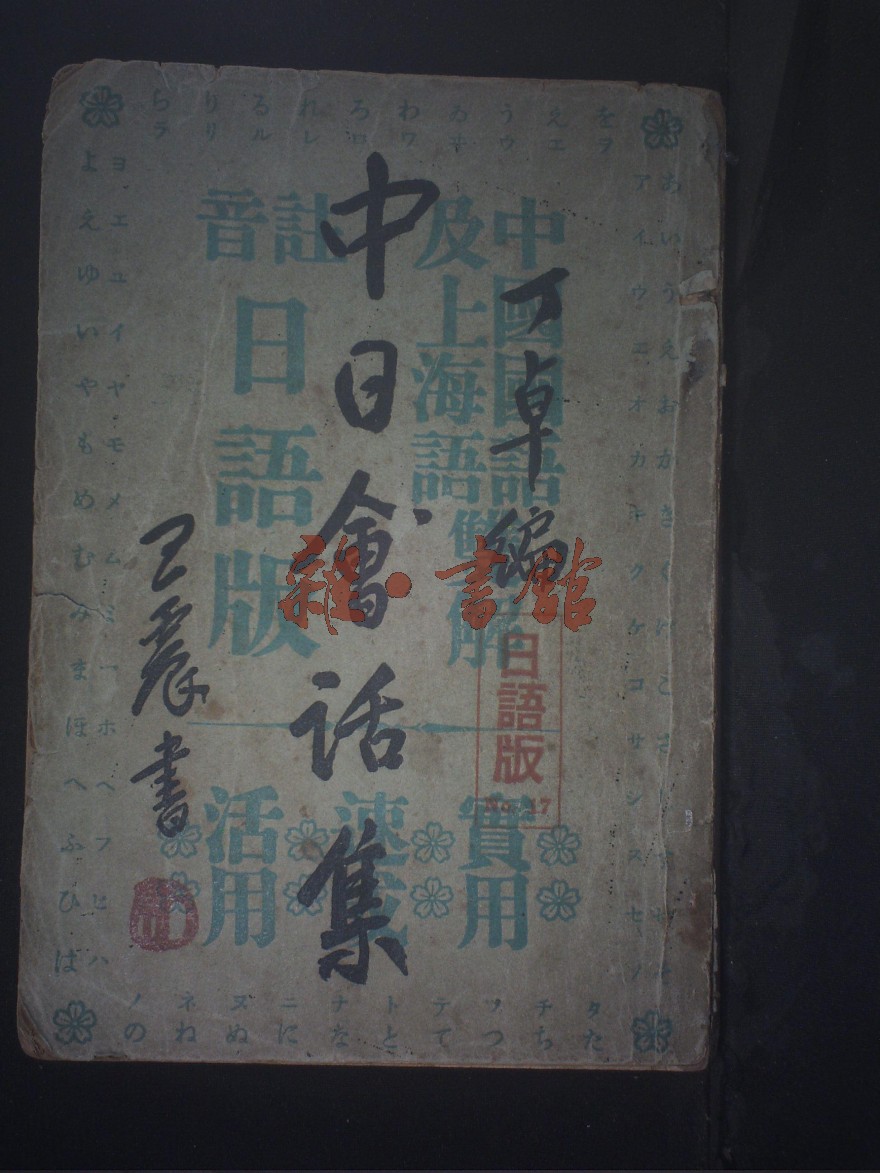 丁卓編
中日會话集
王震書
中國國語
及上海語雙解
註音
日語版
實用
速成
活用
日語版
No. 17
雜·書館
をえうゐわろれるりら
ヲエウヰワロレルリラ
あいうえおかきくけこさ
アイウエオカキクケコサシスセソ
たちつてとなにぬねの
タチツテトナニヌネノ
よえゆいやもめむみまほへふひは
ヨエユイヤモメムミーホヘフヒハ